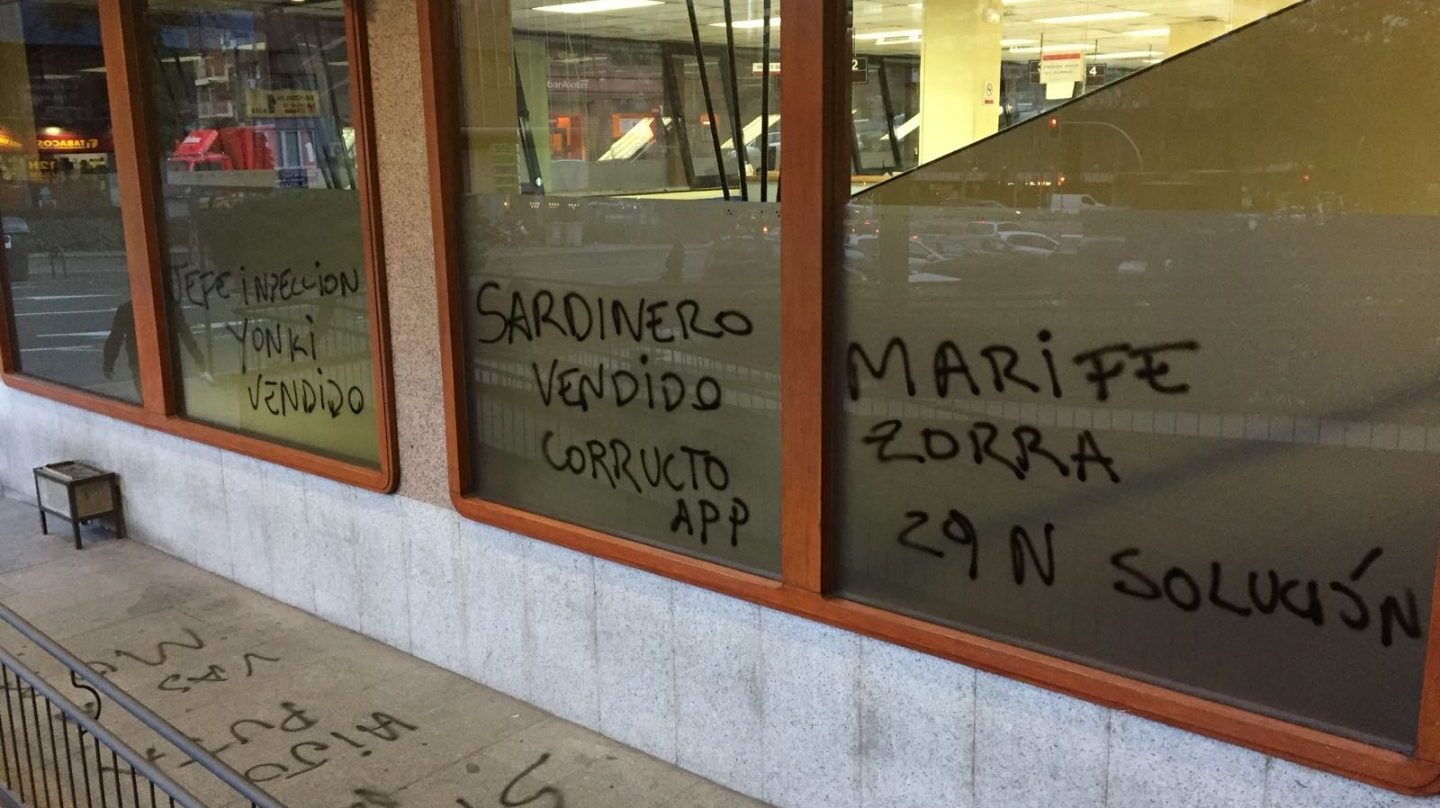 JEFE INPECCION
YONKI
VENDIDO
SARDINERO
VENDIDO
CORRUCTO
APP
MARIFE
ZORRA
29 N SOLUCIÓN
TABACOS
bankinter
2
4
HIJO